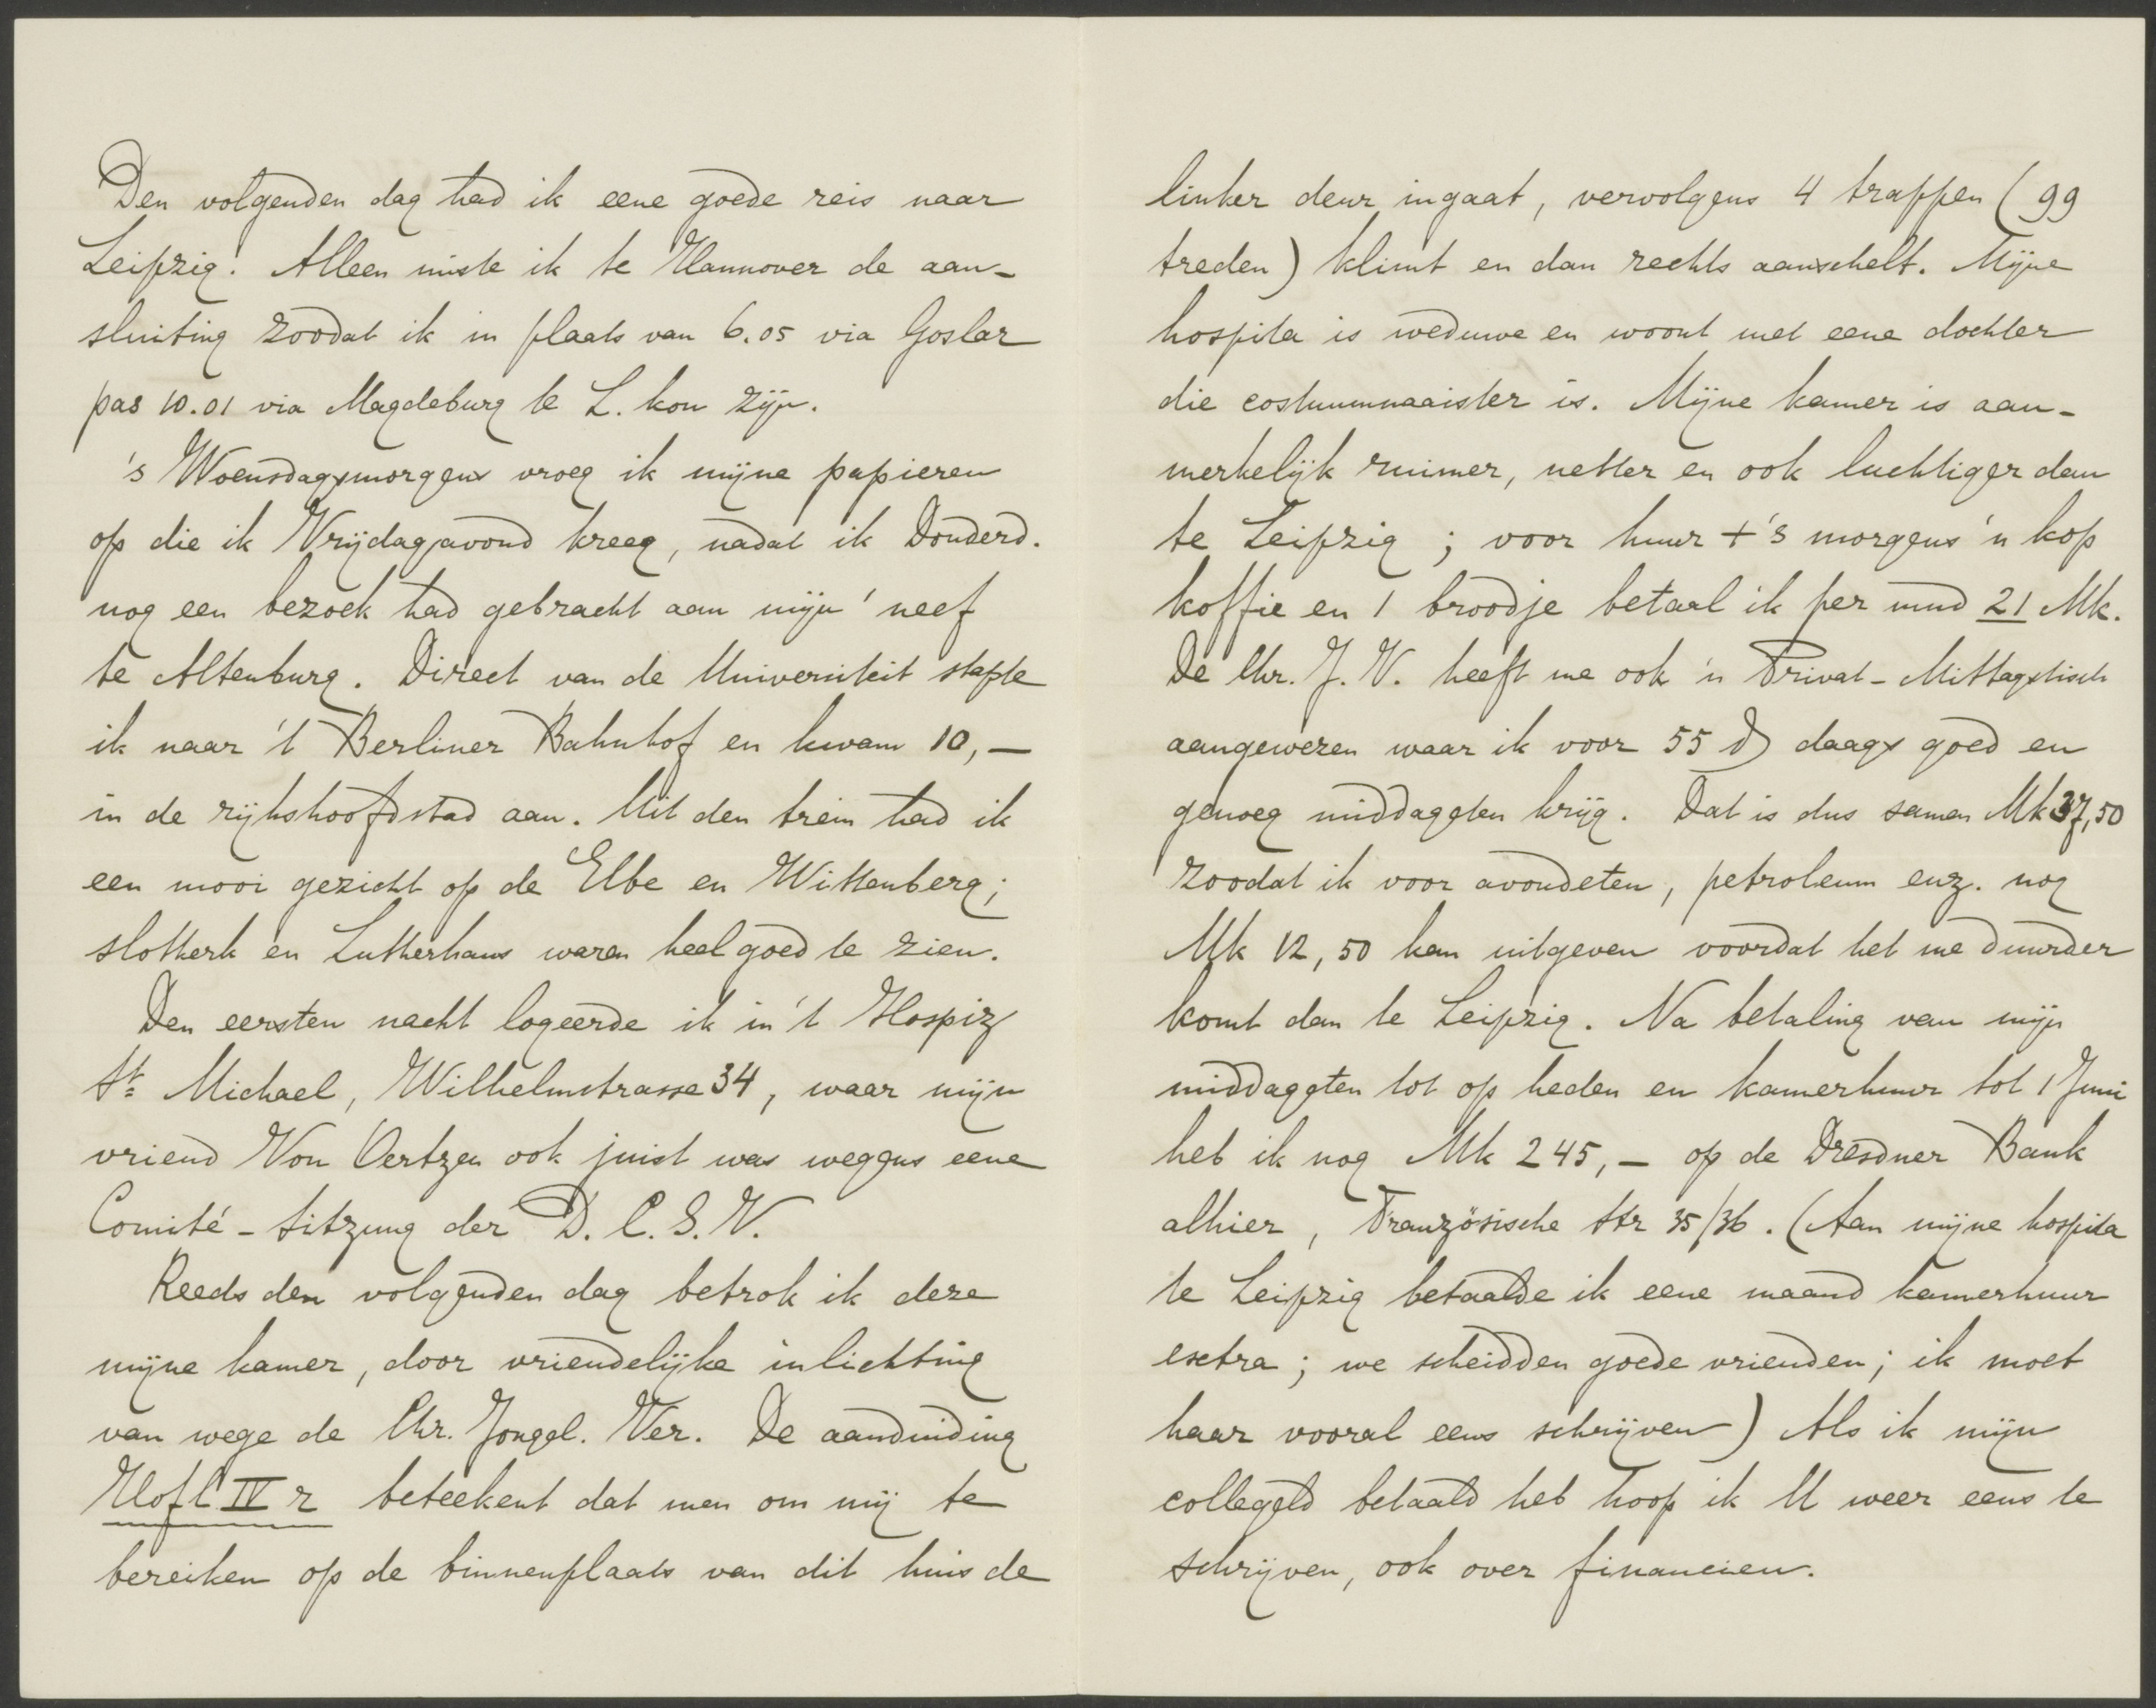 Den volgenden dag had ik eene goede reis naar
Leipzig. Alleen miste ik te Hannover de aan-
sluiting zoodat ik in plaats van 6.05 via Goslar
pas 10.01 via Magdeburg te L. kon zijn.
's Woensdagsmorgens vroeg ik mijne papieren
op die ik Vrijdagavond kreeg, nadat ik Donderd.
nog een bezoek had gebracht aan mijn' neef
te Altenburg. Direct van de Universiteit stapte
ik naar 't Berliner Bahnhof en kwam 10,—
in de rijkshoofdstad aan. Uit den trein had ik
een mooi gezicht op de Elbe en Wittenberg;
slotkerk en Lutherhaus waren heel goed te zien.
Den eersten nacht logeerde ik in 't Hospiz
St Michael, Wilhelmstrasse 34, waar mijn
vriend Von Oertzen ook juist was wegens eene
Comité-Sitzung der D. C. S. V.
Reeds den volgenden dag betrok ik deze
mijne kamer, door vriendelijke inlichting
van wege de Chr. Jongel. Ver. De aanduiding
Hof l IV r beteekent dat men om mij te
bereiken op de binnenplaats van dit huis de
linker deur ingaat, vervolgens 4 trappen (99
treden) klimt en dan rechts aanschelt. Mijne
hospita is weduwe en woont met eene dochter
die costuumnaaister is. Mijne kamer is aan-
merkelijk ruimer, netter en ook luchtiger dan
te Leipzig; voor huur + 's morgens 'n kop
koffie en 1 broodje betaal ik per mnd 21 Mk.
De Chr. J. V. heeft me ook 'n Privat-Mittagstisch
aangewezen waar ik voor 55 ₰ daags goed en
genoeg middageten krijg. Dat is dus samen Mk 37,50
zoodat ik voor avondeten, petroleum enz. nog
Mk 12,50 kan uitgeven voordat het me duurder
komt dan te Leipzig. Na betaling van mijn
middageten tot op heden en kamerhuur tot 1 Juni
heb ik nog Mk 245,— op de Dresdner Bank
alhier, Französische Str 35/36. (Aan mijne hospita
te Leipzig betaalde ik eene maand kamerhuur
extra; we scheidden goede vrienden; ik moet
haar vooral eens schrijven) Als ik mijn
collegegeld betaald heb hoop ik U weer eens te
schrijven, ook over financien.